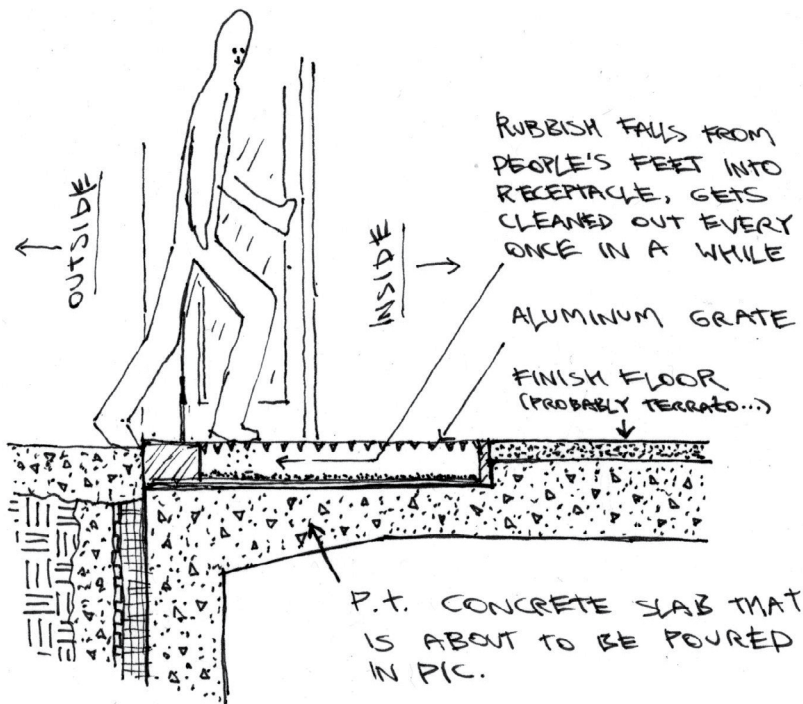 OUTSIDE
INSIDE
RUBBISH FALLS FROM
PEOPLE'S FEET INTO
RECEPTACLE, GETS
CLEANED OUT EVERY
ONCE IN A WHILE
ALUMINUM GRATE
FINISH FLOOR
(PROBABLY TERRAZO...)
P.T. CONCRETE SLAB THAT
IS ABOUT TO BE POURED
IN PIC.